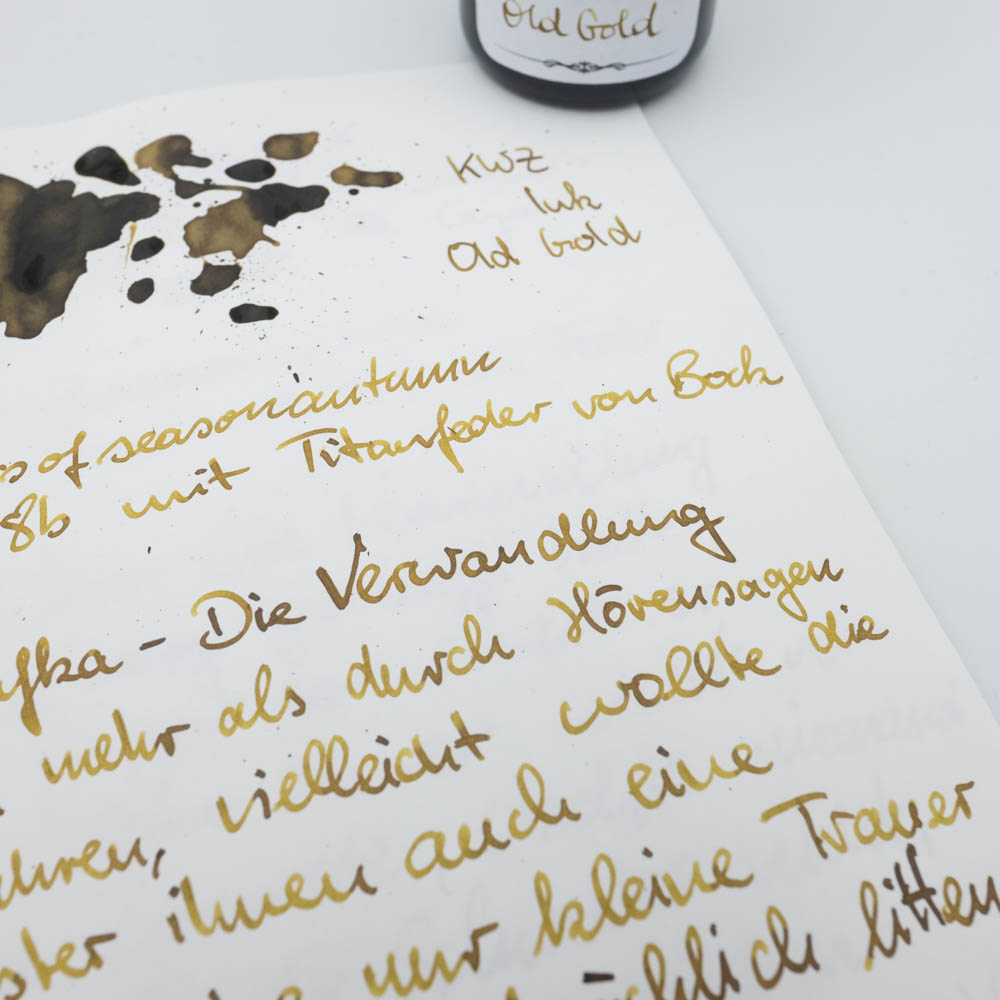 Old Gold
KWZ
Ink
Old Gold
s of season autumn
8b mit Titanfeder von Bock
fka - Die Verwandlung
mehr als durch Hörensagen
hren, vielleicht wollte die
ster ihnen auch eine
nur kleine Trauer
litten